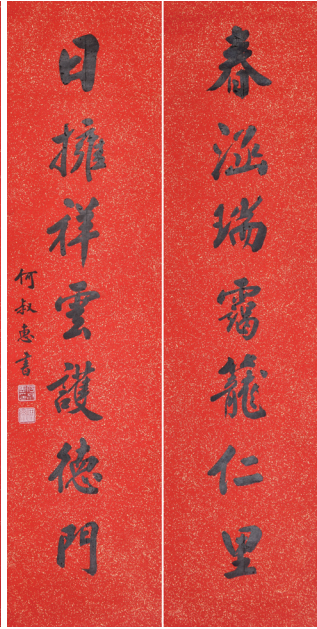 春涵瑞靄籠仁里
日擁祥雲護德門
何叔惠書